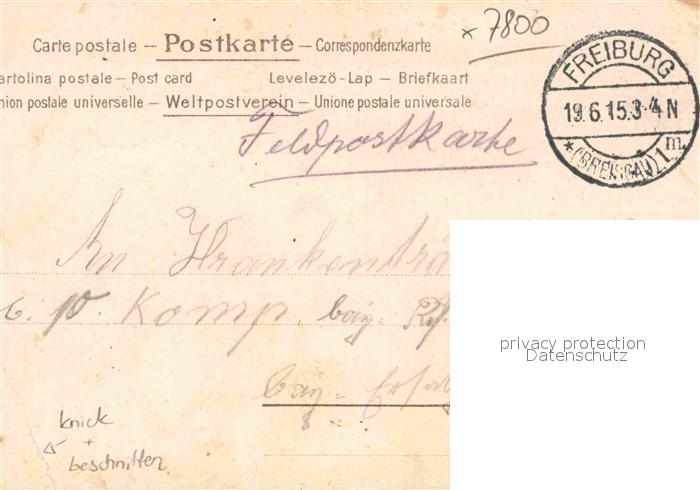 * 7800
Carte postale — Postkarte — Correspondenzkarte
artolina postale — Post card Levelezö-Lap — Briefkaart
nion postale universelle — Weltpostverein — Unione postale universale
FREIBURG
19.6.15.3-4 N
* (BREISGAU) 1 m.
Feldpostkarte
An Krankenträ
Komp. bay.
bay.
privacy protection
Datenschutz
knick
+
beschnitten